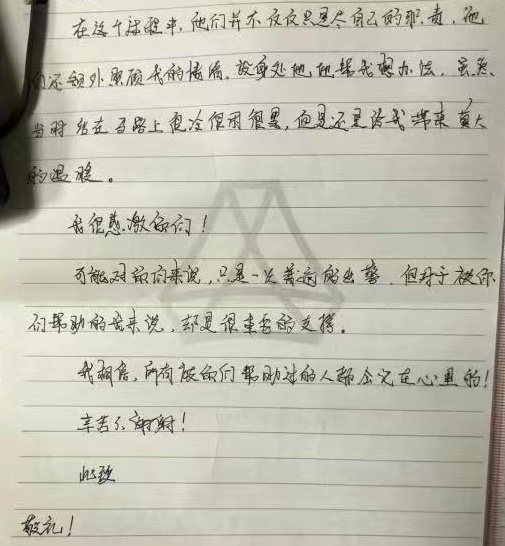 在这个过程中，他们并不仅仅只是尽自己的职责，他
们还额外照顾我的情绪，设身处地地帮我想办法，虽然
当时站在马路上很冷很困很累，但是还是给我带来莫大
的温暖。
我很感激你们！
可能对你们来说，只是一次普通的出警，但对于被你
们帮助的我来说，却是很重要的支撑。
我相信，所有被你们帮助过的人都会记在心里的！
辛苦了谢谢！
此致
敬礼！